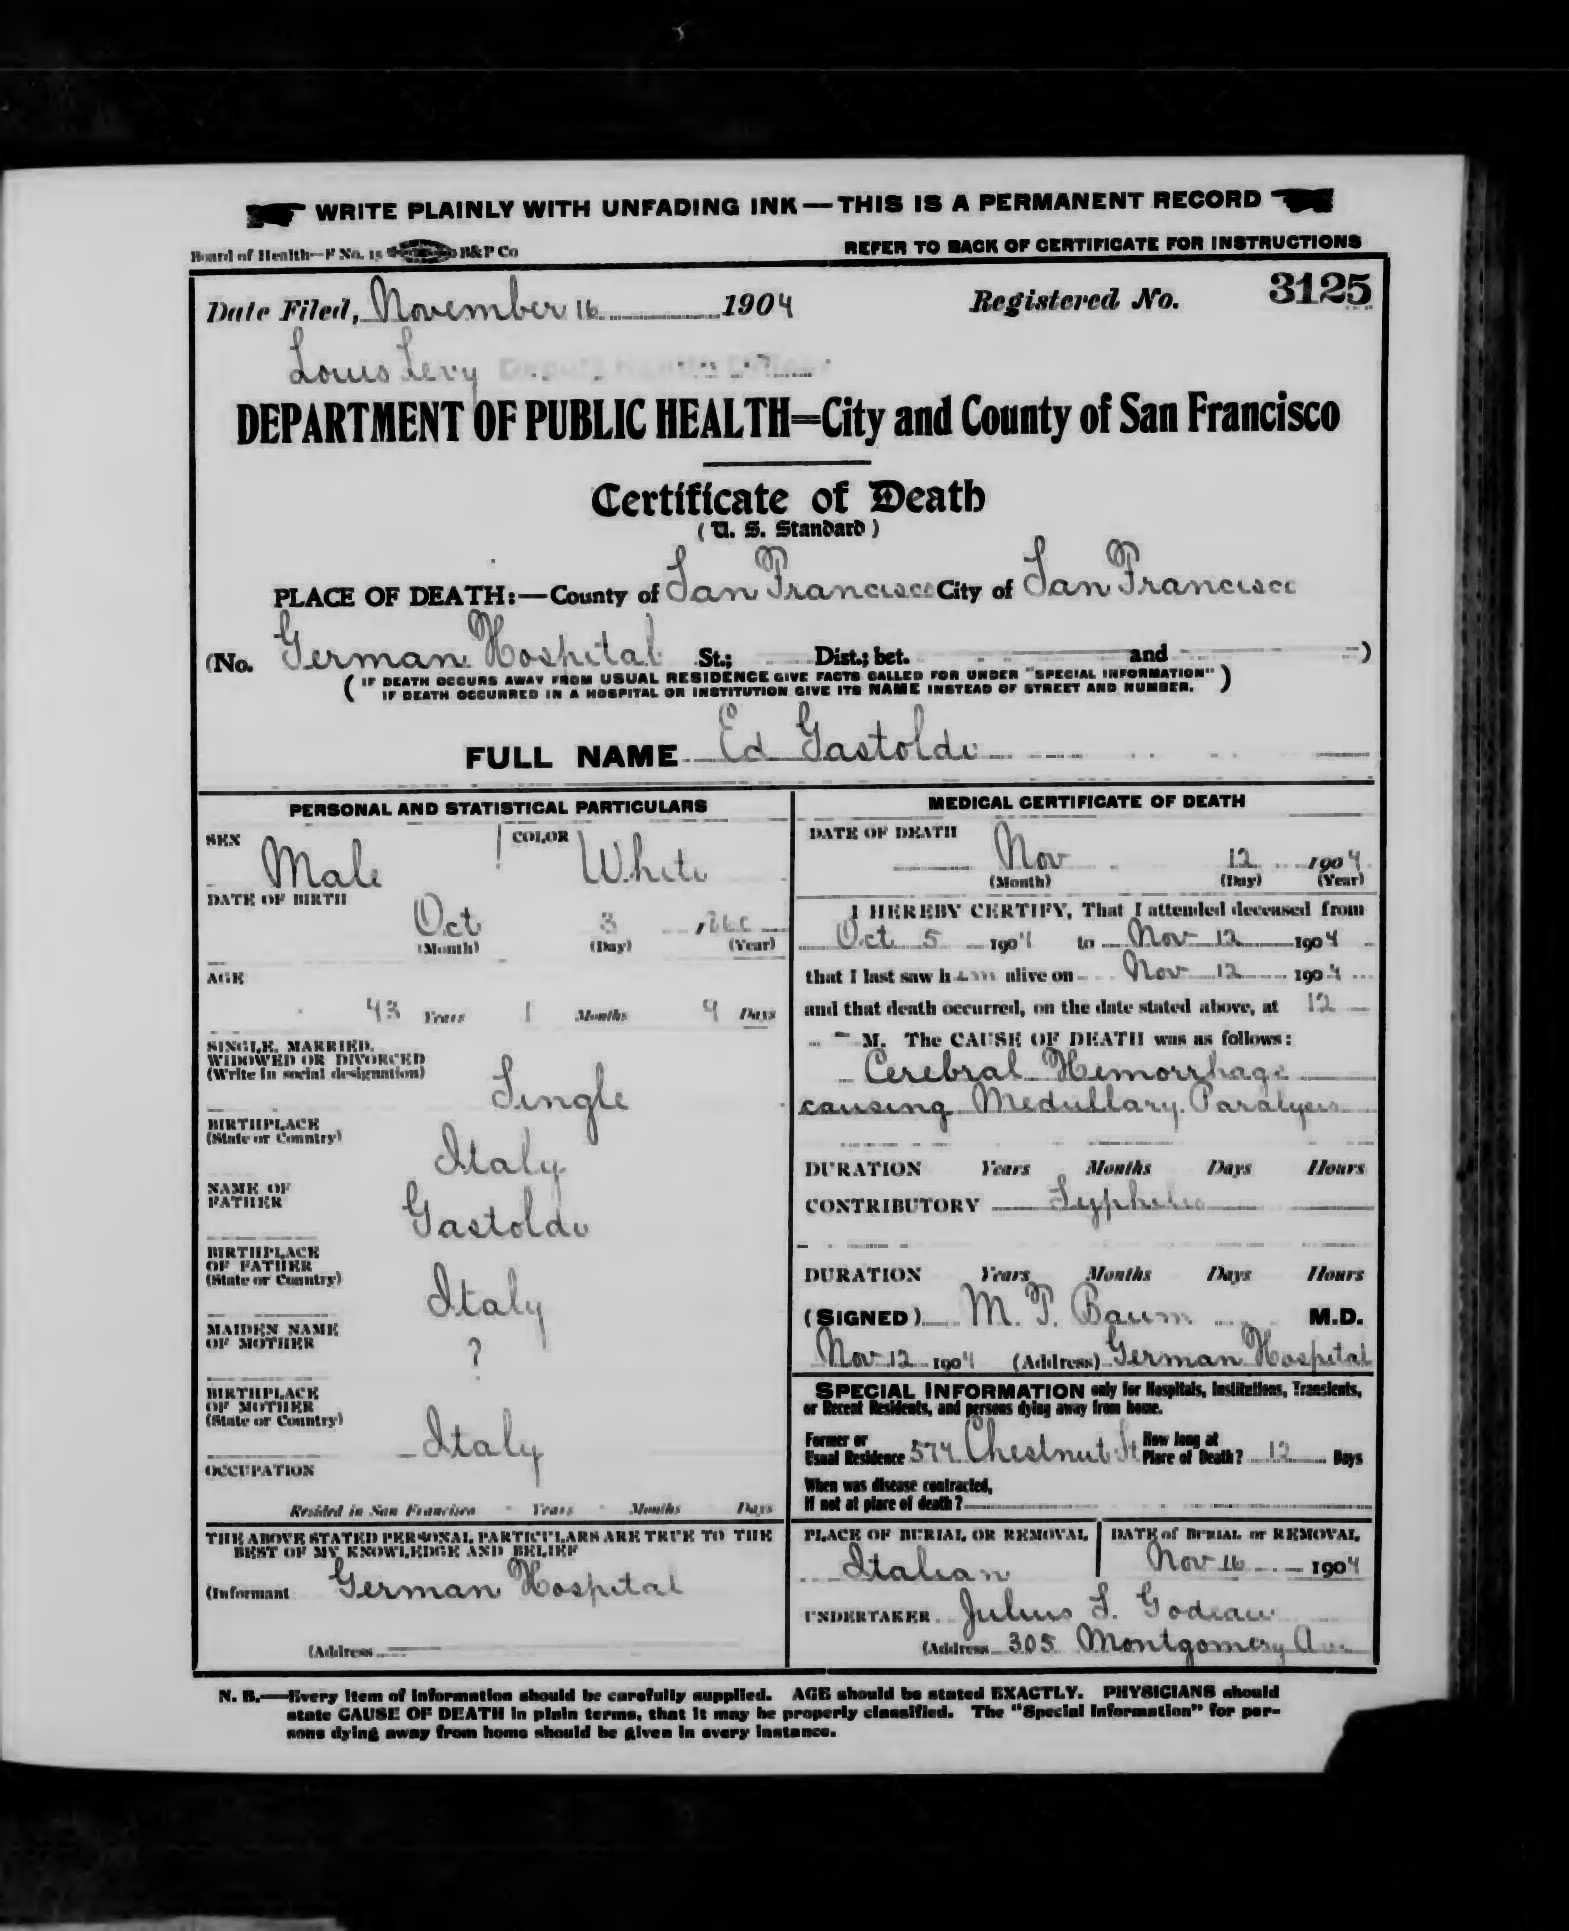 WRITE PLAINLY WITH UNFADING INK — THIS IS A PERMANENT RECORD
Board of Health—F No. 15 B&P Co REFER TO BACK OF CERTIFICATE FOR INSTRUCTIONS
Date Filed, November 16 1904 Registered No. 3125
Louis Levy Deputy Health Officer
DEPARTMENT OF PUBLIC HEALTH=City and County of San Francisco
Certificate of Death
( U. S. Standard )
PLACE OF DEATH:—County of San Francisco City of San Francisco
(No. German Hospital St.; Dist.; bet. and )
( IF DEATH OCCURS AWAY FROM USUAL RESIDENCE GIVE FACTS CALLED FOR UNDER "SPECIAL INFORMATION" )
IF DEATH OCCURRED IN A HOSPITAL OR INSTITUTION GIVE ITS NAME INSTEAD OF STREET AND NUMBER.
FULL NAME Ed Gastoldi
PERSONAL AND STATISTICAL PARTICULARS
SEX Male COLOR White
DATE OF BIRTH
Oct 3
(Month) (Day) (Year)
AGE
43 Years 1 Months 9 Days
SINGLE, MARRIED,
WIDOWED OR DIVORCED
(Write in social designation)
Single
BIRTHPLACE
(State or Country)
Italy
NAME OF
FATHER
Gastoldi
BIRTHPLACE
OF FATHER
(State or Country)
Italy
MAIDEN NAME
OF MOTHER
?
BIRTHPLACE
OF MOTHER
(State or Country)
Italy
OCCUPATION
Resided in San Francisco Years Months Days
THE ABOVE STATED PERSONAL PARTICULARS ARE TRUE TO THE
BEST OF MY KNOWLEDGE AND BELIEF
(Informant German Hospital
(Address
MEDICAL CERTIFICATE OF DEATH
DATE OF DEATH
Nov 12 1904
(Month) (Day) (Year)
I HEREBY CERTIFY, That I attended deceased from
Oct 5 1904 to Nov 12 1904
that I last saw h im alive on Nov 12 1904
and that death occurred, on the date stated above, at 12
M. The CAUSE OF DEATH was as follows:
Cerebral Hemorrhage
causing Medullary Paralysis
DURATION Years Months Days Hours
CONTRIBUTORY Syphilis
DURATION Years Months Days Hours
(SIGNED) M. T. Baum M.D.
Nov 12 1904 (Address) German Hospital
SPECIAL INFORMATION only for Hospitals, Institutions, Transients,
or Recent Residents, and persons dying away from home.
Former or
Usual Residence 574 Chestnut St How long at
Place of Death? 12 Days
When was disease contracted,
If not at place of death?
PLACE OF BURIAL OR REMOVAL DATE of BURIAL or REMOVAL
Italian Nov 16 1904
UNDERTAKER Julius S. Godeau
(Address 305 Montgomery Ave
N. B.—Every item of information should be carefully supplied. AGE should be stated EXACTLY. PHYSICIANS should
state CAUSE OF DEATH in plain terms, that it may be properly classified. The "Special Information" for per-
sons dying away from home should be given in every instance.